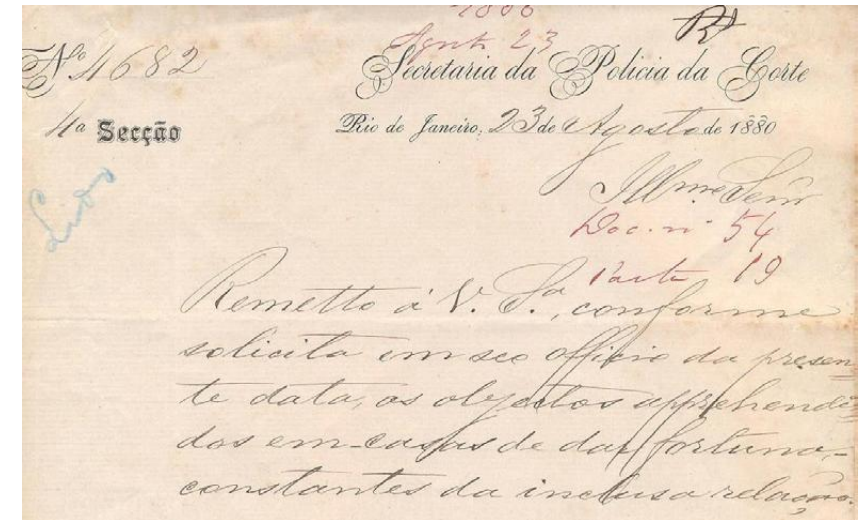 1880
Agosto 23
Nº 4682
Secretaria da Policia da Corte
4a Secção
Rio de Janeiro, 23 de Agosto de 1880
Lido
Illmo. Senr
Doc. nº 54
Parte 19
Remetto á V. Sa., conforme
solicita em seo officio da presen
te data, os objectos apprehendi
dos em casas de dar fortuna,
constantes da inclusa relação.